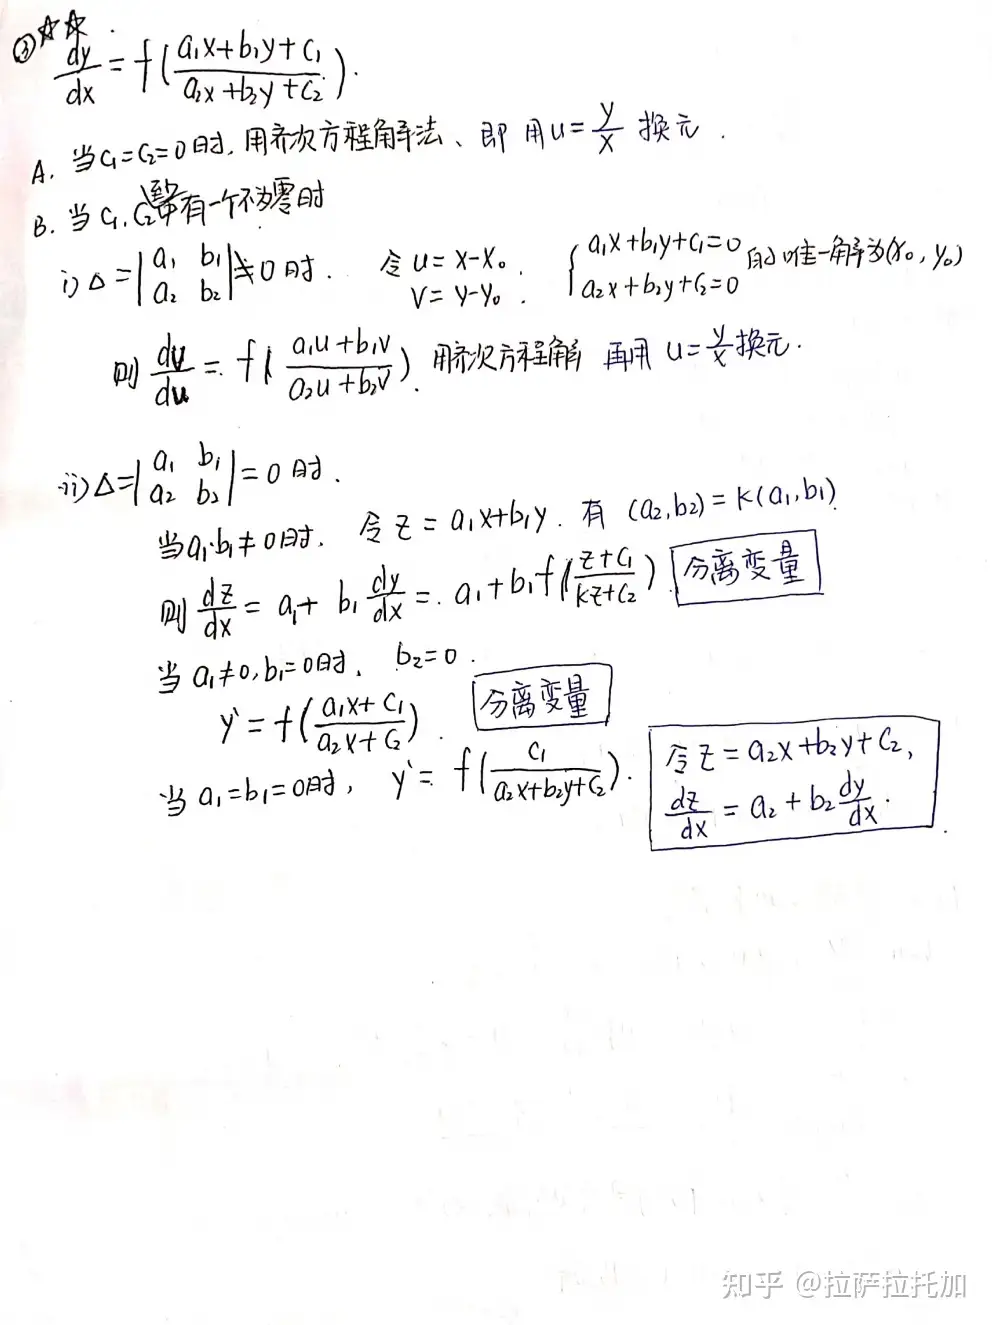 ② ☆☆
dy/dx = f((a₁x+b₁y+c₁)/(a₂x+b₂y+c₂)).
A. 当c₁=c₂=0时, 用齐次方程解法、即 用u=y/x 换元.
B. 当c₁, c₂中至少有一个不为零时
i) Δ=|a₁ b₁; a₂ b₂|≠0时. 令 u=x-x₀. v=y-y₀. {a₁x+b₁y+c₁=0; a₂x+b₂y+c₂=0 的唯一解为(x₀, y₀)
则 dv/du = f((a₁u+b₁v)/(a₂u+b₂v)). 用齐次方程解 再用 u=y/x换元.
ii) Δ=|a₁ b₁; a₂ b₂|=0时.
当a₁·b₁≠0时, 令 z=a₁x+b₁y. 有 (a₂,b₂)=k(a₁,b₁)
则 dz/dx = a₁+ b₁ dy/dx = a₁+b₁f((z+c₁)/(kz+c₂)) 分离变量
当 a₁≠0, b₁=0时, b₂=0.
y' = f((a₁x+c₁)/(a₂x+c₂)). 分离变量
当 a₁=b₁=0时, y' = f(c₁/(a₂x+b₂y+c₂)). 令z=a₂x+b₂y+c₂,
dz/dx = a₂+b₂ dy/dx.
知乎 @拉萨拉托加